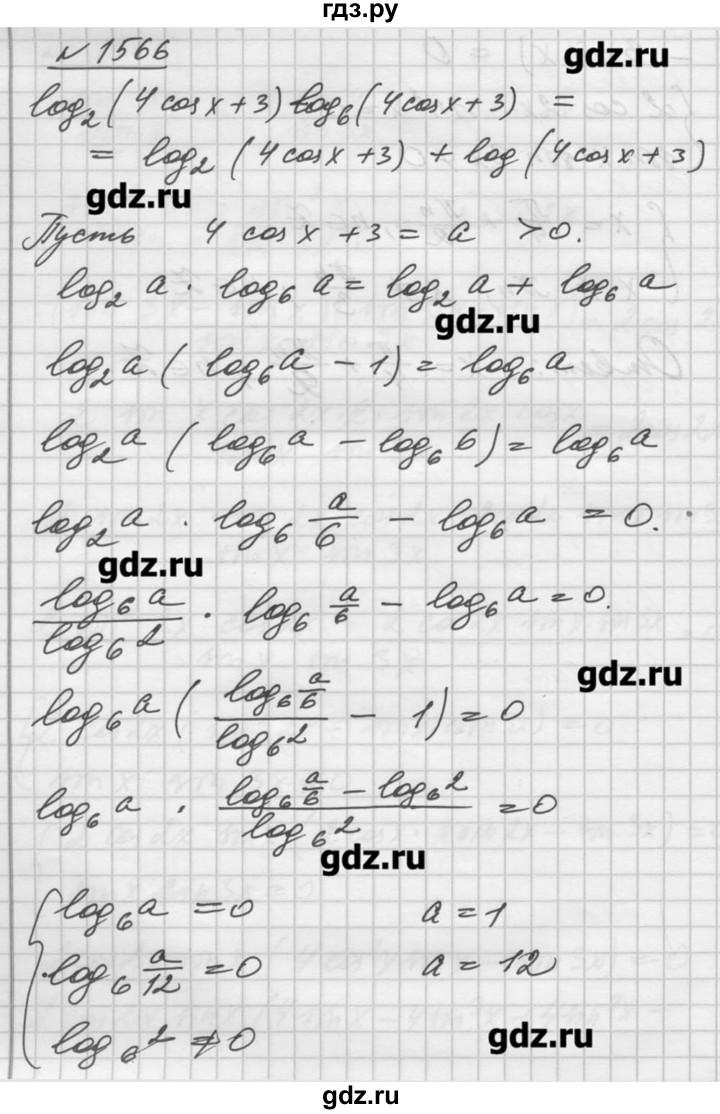 гдз.ру
№1566
gdz.ru
log₂(4cosx+3) log₆(4cosx+3) =
= log₂(4cosx+3) + log(4cosx+3)
gdz.ru
Пусть 4cosx+3 = a >0.
log₂a · log₆a = log₂a + log₆a
gdz.ru
log₂a (log₆a - 1) = log₆a
log₂a (log₆a - log₆6) = log₆a
log₂a · log₆ a/6 - log₆a = 0.
gdz.ru
log₆a/log₆2 · log₆ a/6 - log₆a = 0.
gdz.ru
log₆a ( log₆ a/6 / log₆2 - 1) = 0
log₆a · (log₆ a/6 - log₆2) / log₆2 = 0
gdz.ru
{ log₆a = 0 a = 1
log₆ a/12 = 0 a = 12
log₆2 ≠ 0
gdz.ru
gdz.ru